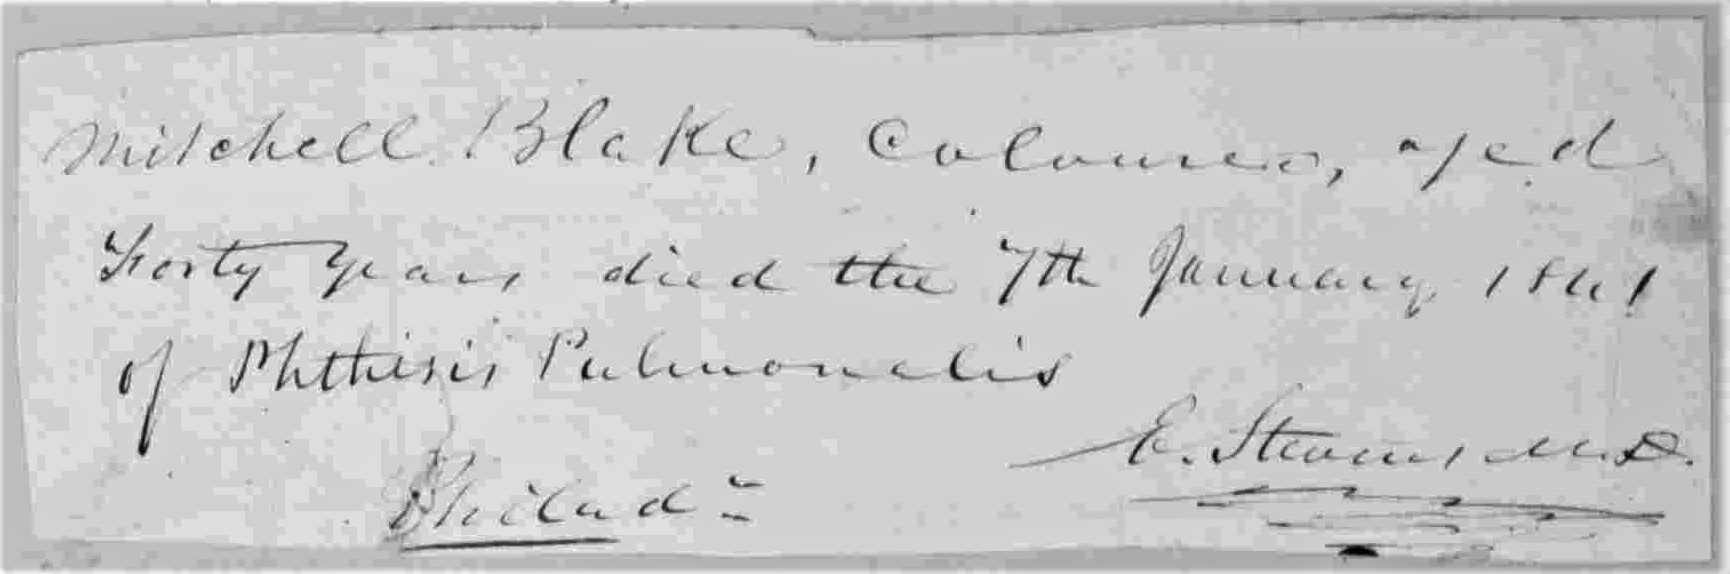 Mitchell Blake, Coloured, aged
Forty years died the 7th January 1841
of Phthisis Pulmonalis
E. Stevens M.D.
Philada